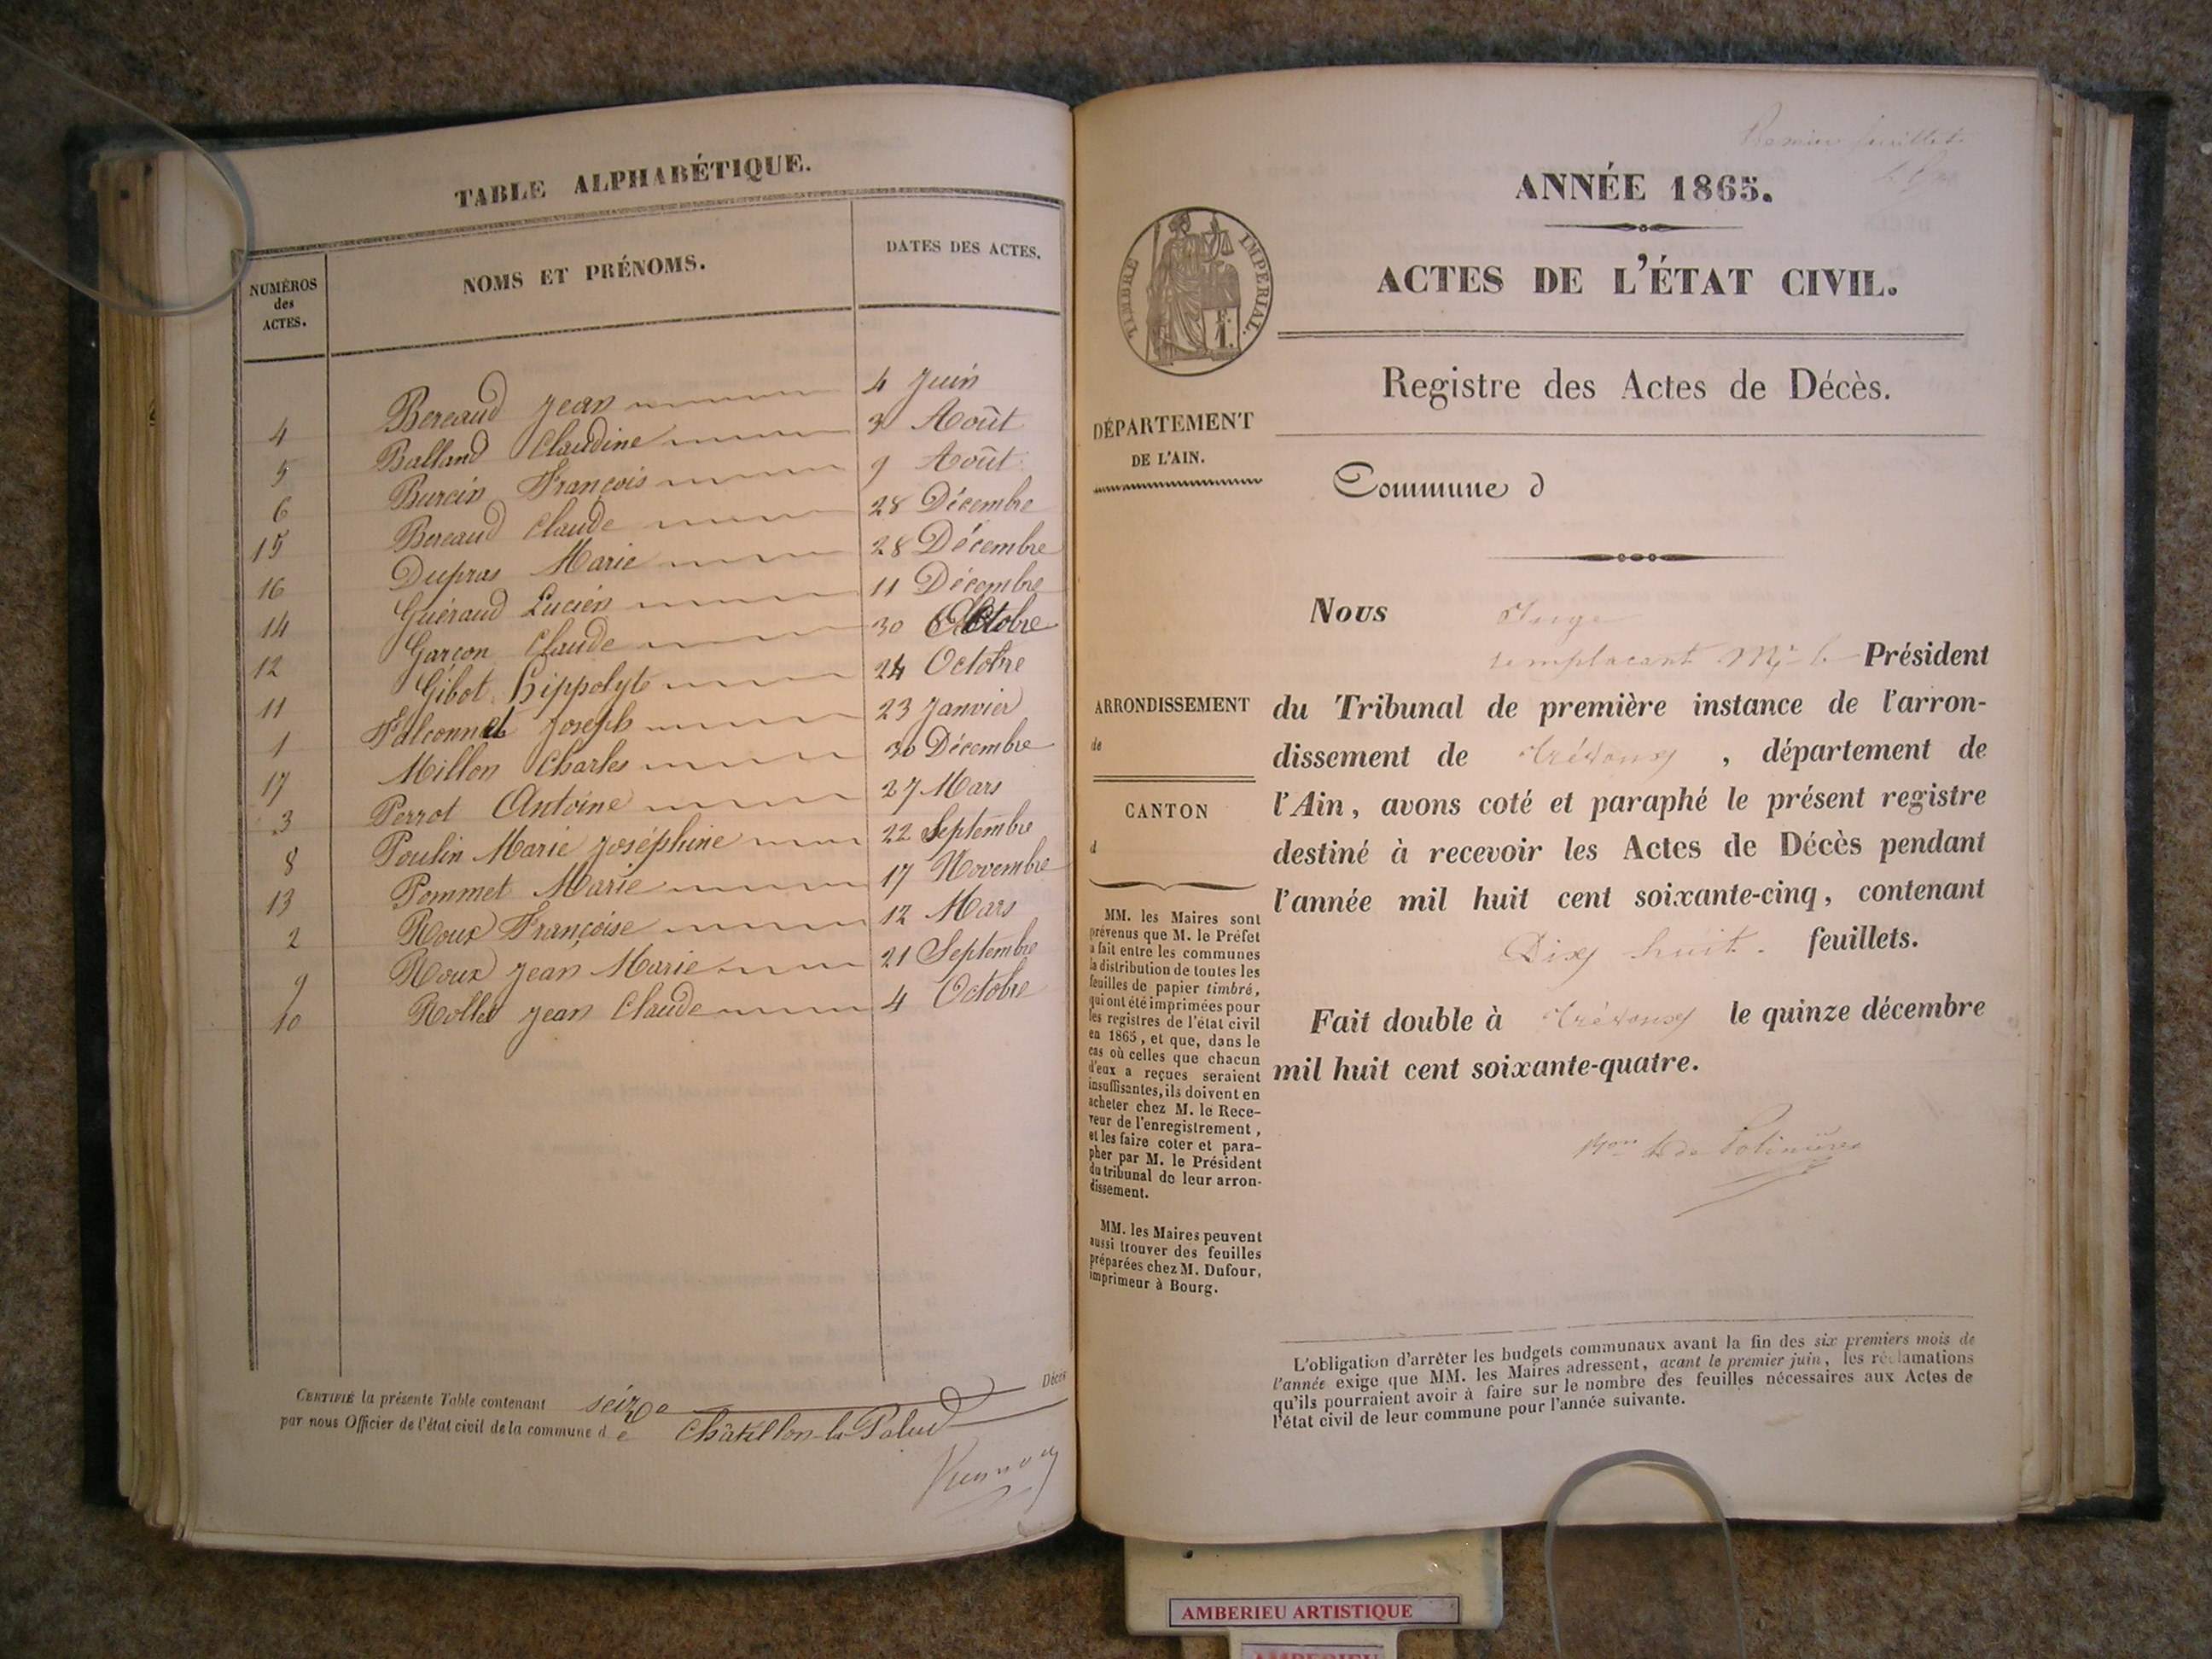 TABLE ALPHABÉTIQUE.
NUMÉROS des ACTES.
NOMS ET PRÉNOMS.
DATES DES ACTES.
4 Bereaud Jean 4 Juin
5 Balland Claudine 3 Août
6 Burcin François 9 Août
15 Bereaud Claude 28 Décembre
16 Dupras Marie 28 Décembre
14 Guéraud Lucien 11 Décembre
12 Garçon Claude 30 Octobre
11 Gibot Hippolyte 24 Octobre
1 Falconnet Joseph 23 Janvier
17 Millon Charles 30 Décembre
3 Perrot Antoine 27 Mars
8 Poulin Marie Joséphine 22 Septembre
13 Pommet Marie 17 Novembre
2 Roux Françoise 12 Mars
9 Roux Jean Marie 21 Septembre
10 Rollet Jean Claude 4 Octobre
CERTIFIÉ la présente Table contenant seize Décès
par nous Officier de l'état civil de la commune de Châtillon-la-Palud
Premier feuillet
ANNÉE 1865.
ACTES DE L'ÉTAT CIVIL.
TIMBRE IMPÉRIAL.
F. 1.
Registre des Actes de Décès.
DÉPARTEMENT
DE L'AIN.
Commune d
Nous Juge
remplacant Mr le Président
ARRONDISSEMENT
de
CANTON
d
du Tribunal de première instance de l'arron-
dissement de Trévoux, département de
l'Ain, avons coté et paraphé le présent registre
destiné à recevoir les Actes de Décès pendant
l'année mil huit cent soixante-cinq, contenant
Dix huit. feuillets.
Fait double à Trévoux le quinze décembre
mil huit cent soixante-quatre.
MM. les Maires sont
prévenus que M. le Préfet
a fait entre les communes
la distribution de toutes les
feuilles de papier timbré,
qui ont été imprimées pour
les registres de l'état civil
en 1865, et que, dans le
cas où celles que chacun
d'eux a reçues seraient
insuffisantes, ils doivent en
acheter chez M. le Rece-
veur de l'enregistrement,
et les faire coter et para-
pher par M. le Président
du tribunal de leur arron-
dissement.
MM. les Maires peuvent
aussi trouver des feuilles
préparées chez M. Dufour,
imprimeur à Bourg.
L'obligation d'arrêter les budgets communaux avant la fin des six premiers mois de
l'année exige que MM. les Maires adressent, avant le premier juin, les réclamations
qu'ils pourraient avoir à faire sur le nombre des feuilles nécessaires aux Actes de
l'état civil de leur commune pour l'année suivante.
AMBERIEU ARTISTIQUE
AMBERIEU